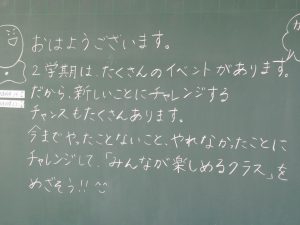 おはようございます。
2学期は、たくさんのイベントがあります。
だから、新しいことにチャレンジする
チャンスもたくさんあります。
今までやったことないこと、やれなかったことに
チャレンジして、「みんなが楽しめるクラス」を
めざそう!!